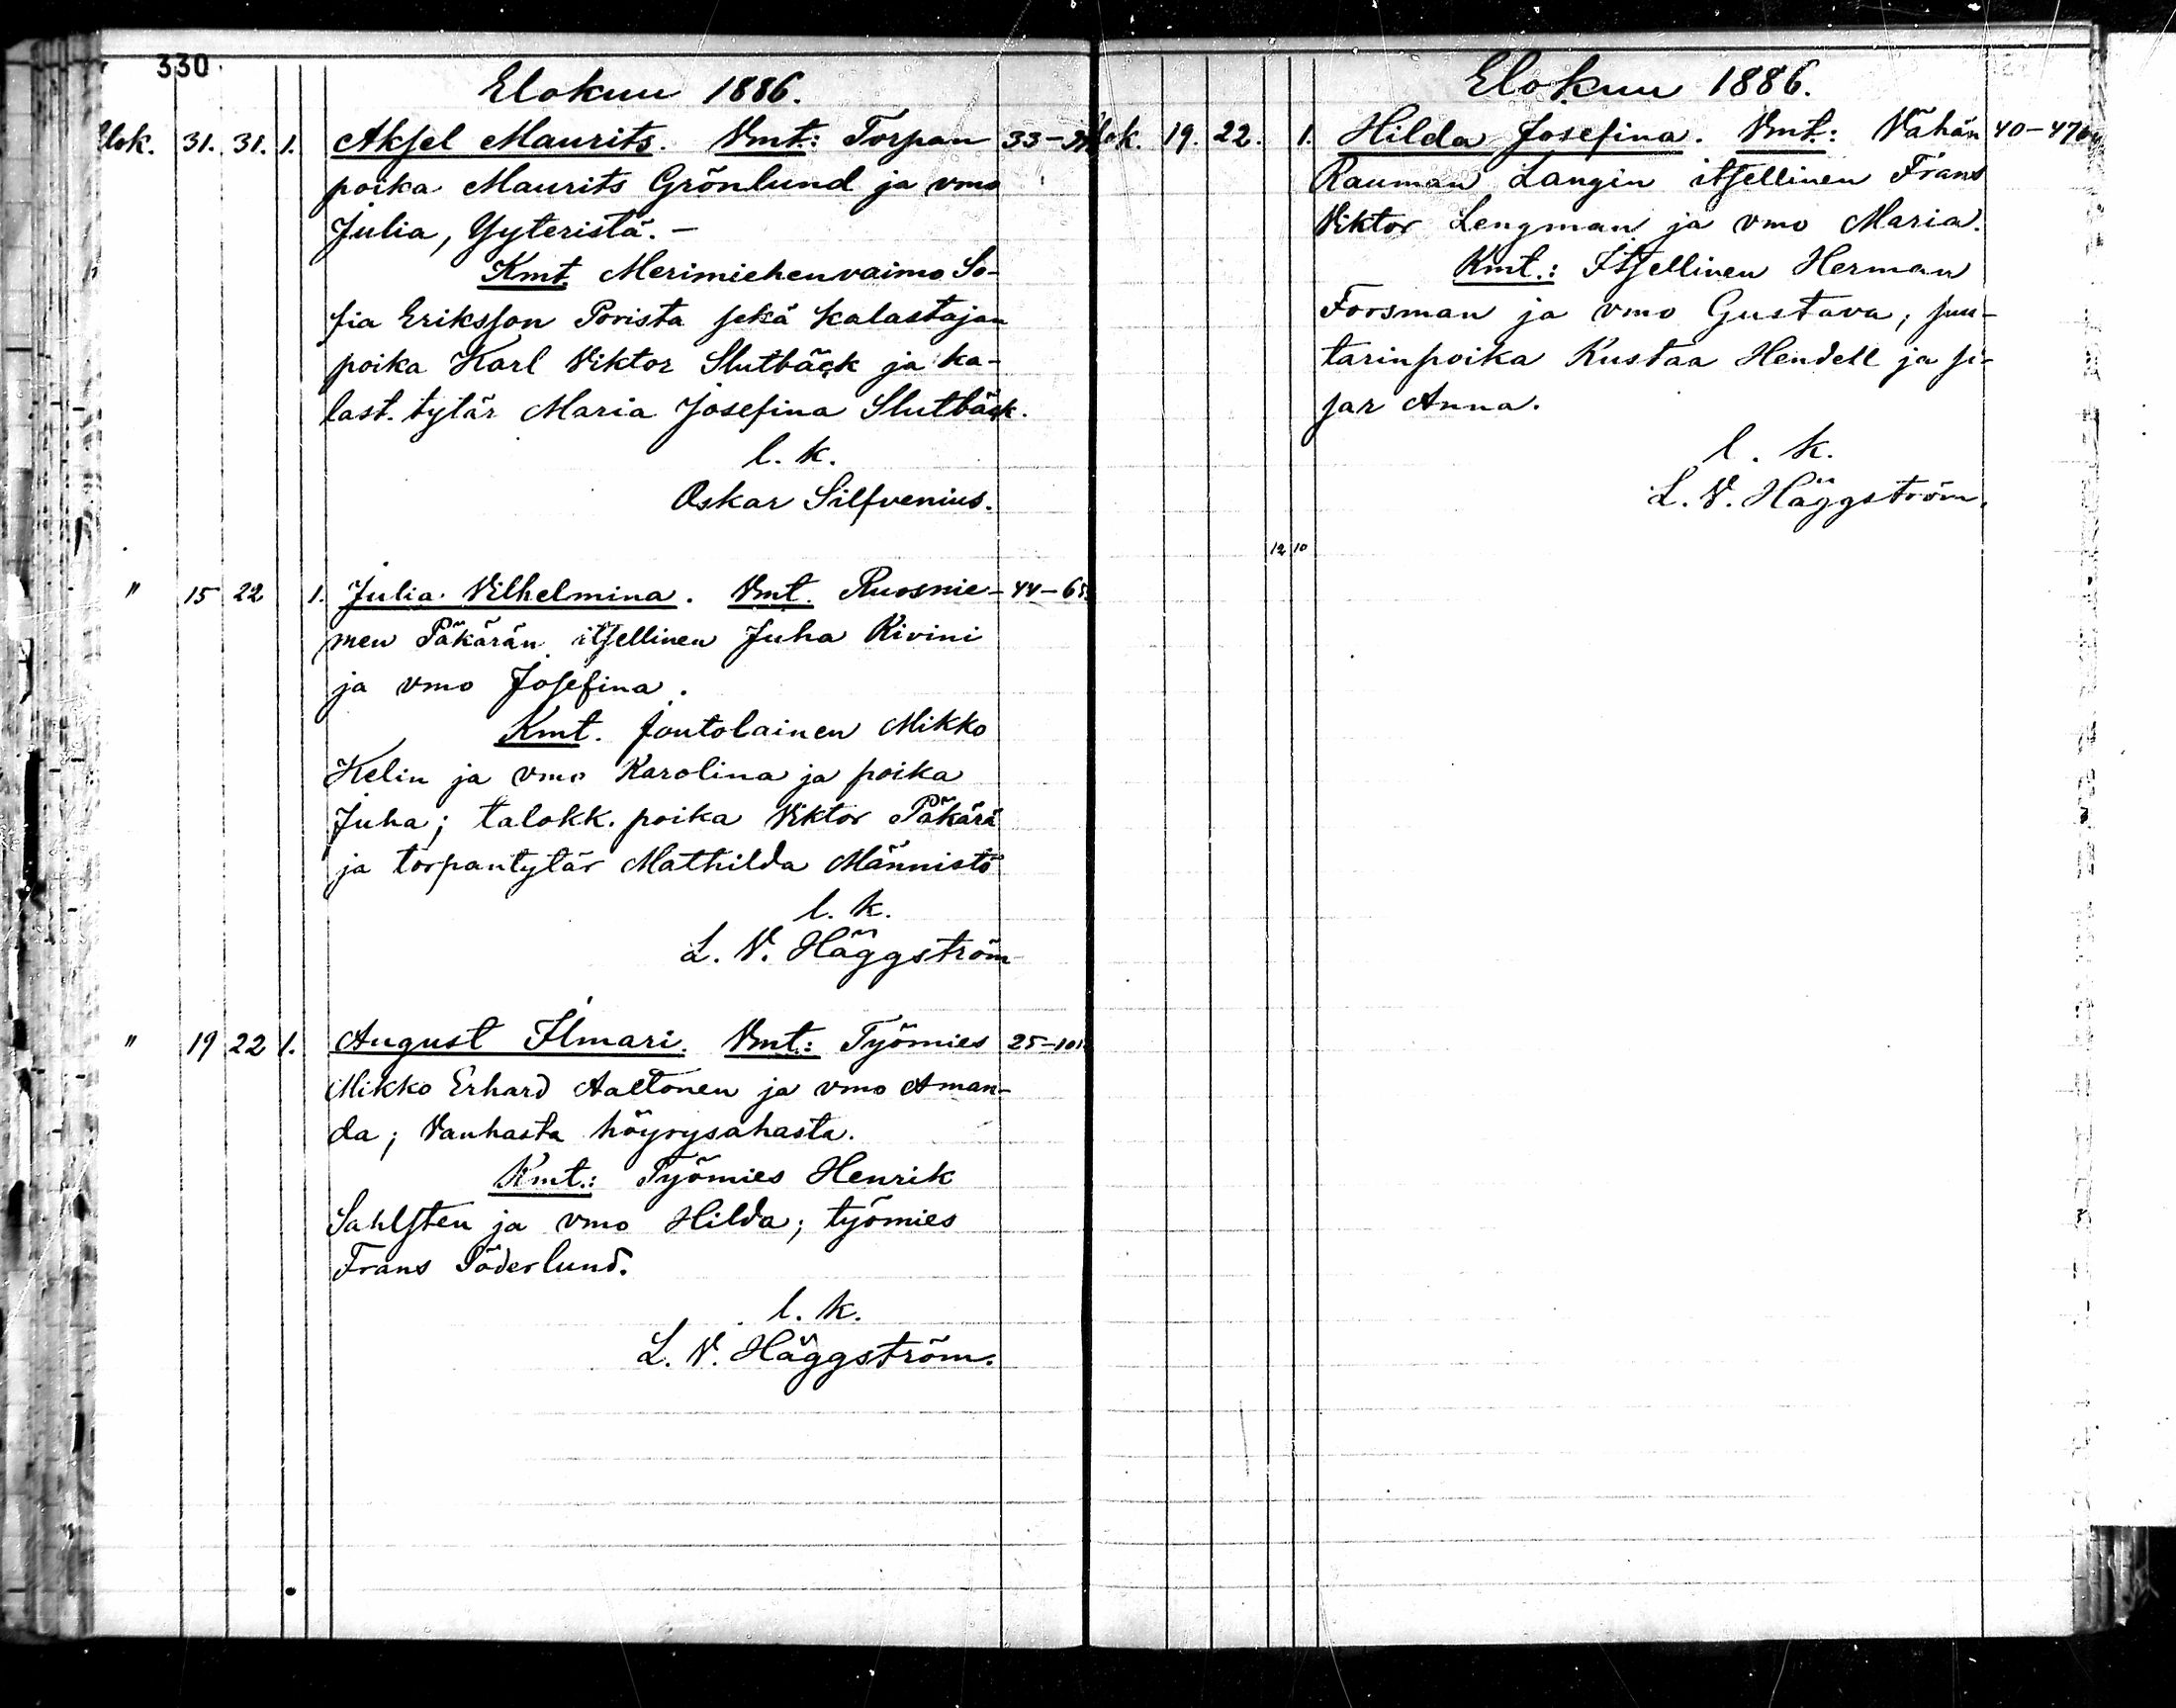 330
Elokuu 1886.
Elok. 31. 31. 1. Aksel Maurits. Vmt: Torpan 33-
poika Maurits Grönlund ja vmo
Julia, Yyteristä. -
Kmt. Merimiehenvaimo So-
fia Eriksson Porista sekä kalastajan
poika Karl Viktor Slutbäck ja ka-
last. tytär Maria Josefina Slutbäck.
l. k.
Oskar Silfvenius.
" 15 22 1. Julia Vilhelmina. Vmt. Ruosnie- 44-65
men Päkärän itsellinen Juha Kivini
ja vmo Josefina.
Kmt. Joutolainen Mikko
Kelin ja vmo Karolina ja poika
Juha; talokk. poika Viktor Päkärä
ja torpantytär Mathilda Männistö
l. k.
L. V. Häggström
" 19 22 1. August Ilmari. Vmt.: Työmies 25-101
Mikko Erhard Aaltonen ja vmo Aman-
da; Vanhasta höyrysahasta.
Kmt.: Työmies Henrik
Sahlsten ja vmo Hilda; työmies
Frans Söderlund.
l. k.
L. V. Häggström.
Elokuu 1886.
Elok. 19. 22. 1. Hilda Josefina. Vmt.: Vähän 40-470
Rauman Langin itsellinen Frans
Viktor Lengman ja vmo Maria.
Kmt.: Itsellinen Herman
Forsman ja vmo Gustava; suu-
tarinpoika Kustaa Hendell ja si-
sar Anna.
l. k.
L. V. Häggström.
12 10